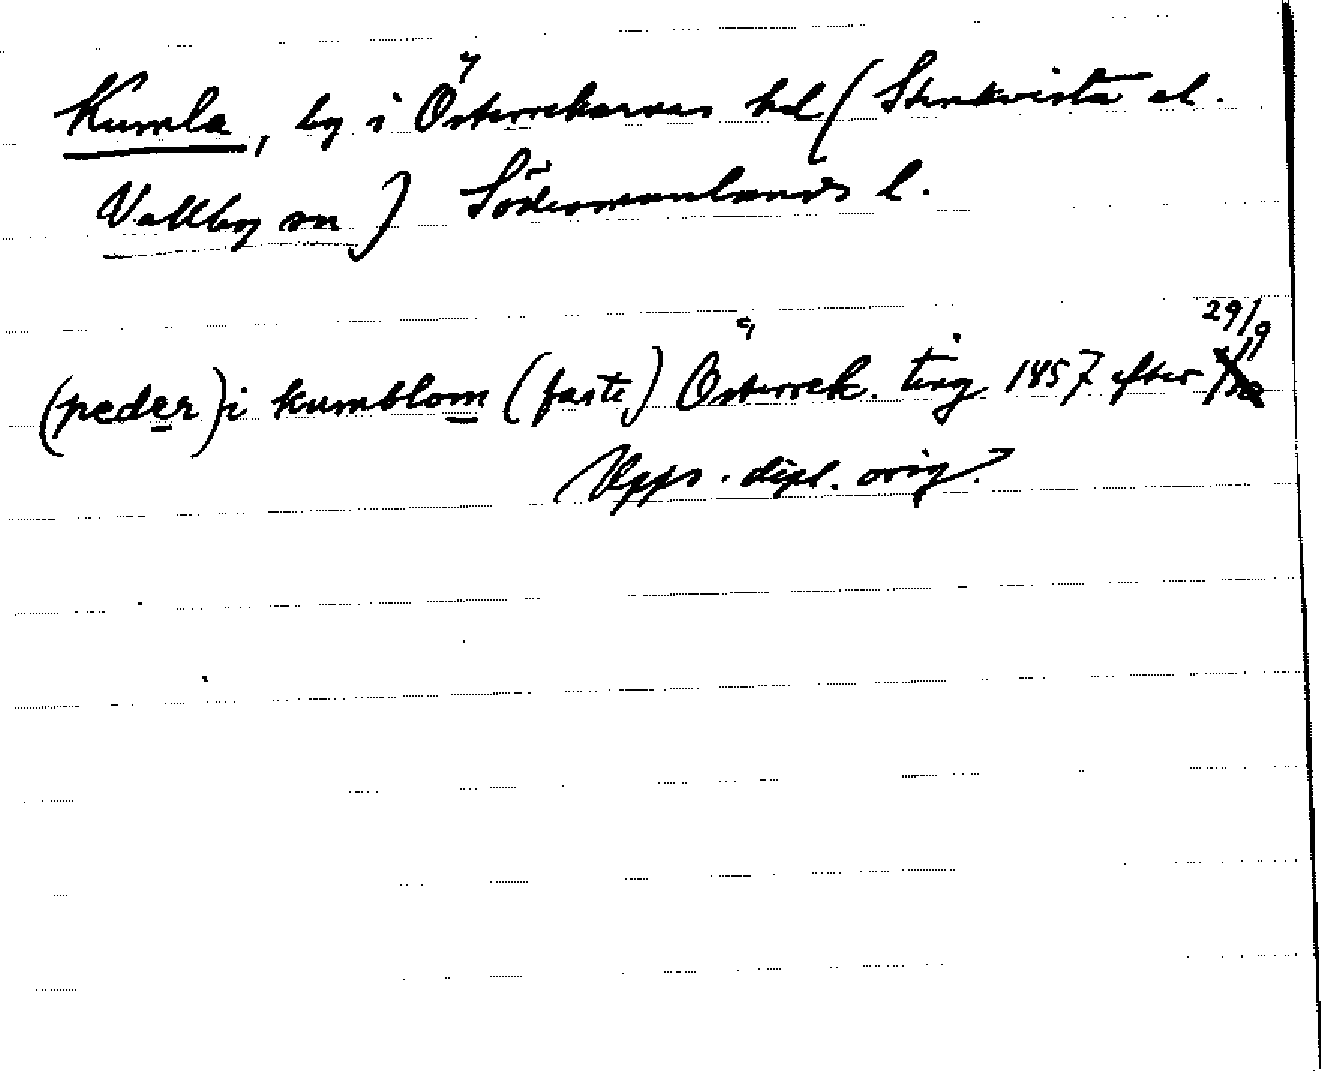 Kumla, by i Österrekarnes hd (Stenkvista el.
Vallby sn) Södermanlands l.
(peder) i kumblom (faste) Österrek. ting 1457 efter 29/9
Upps. dipl. orig.